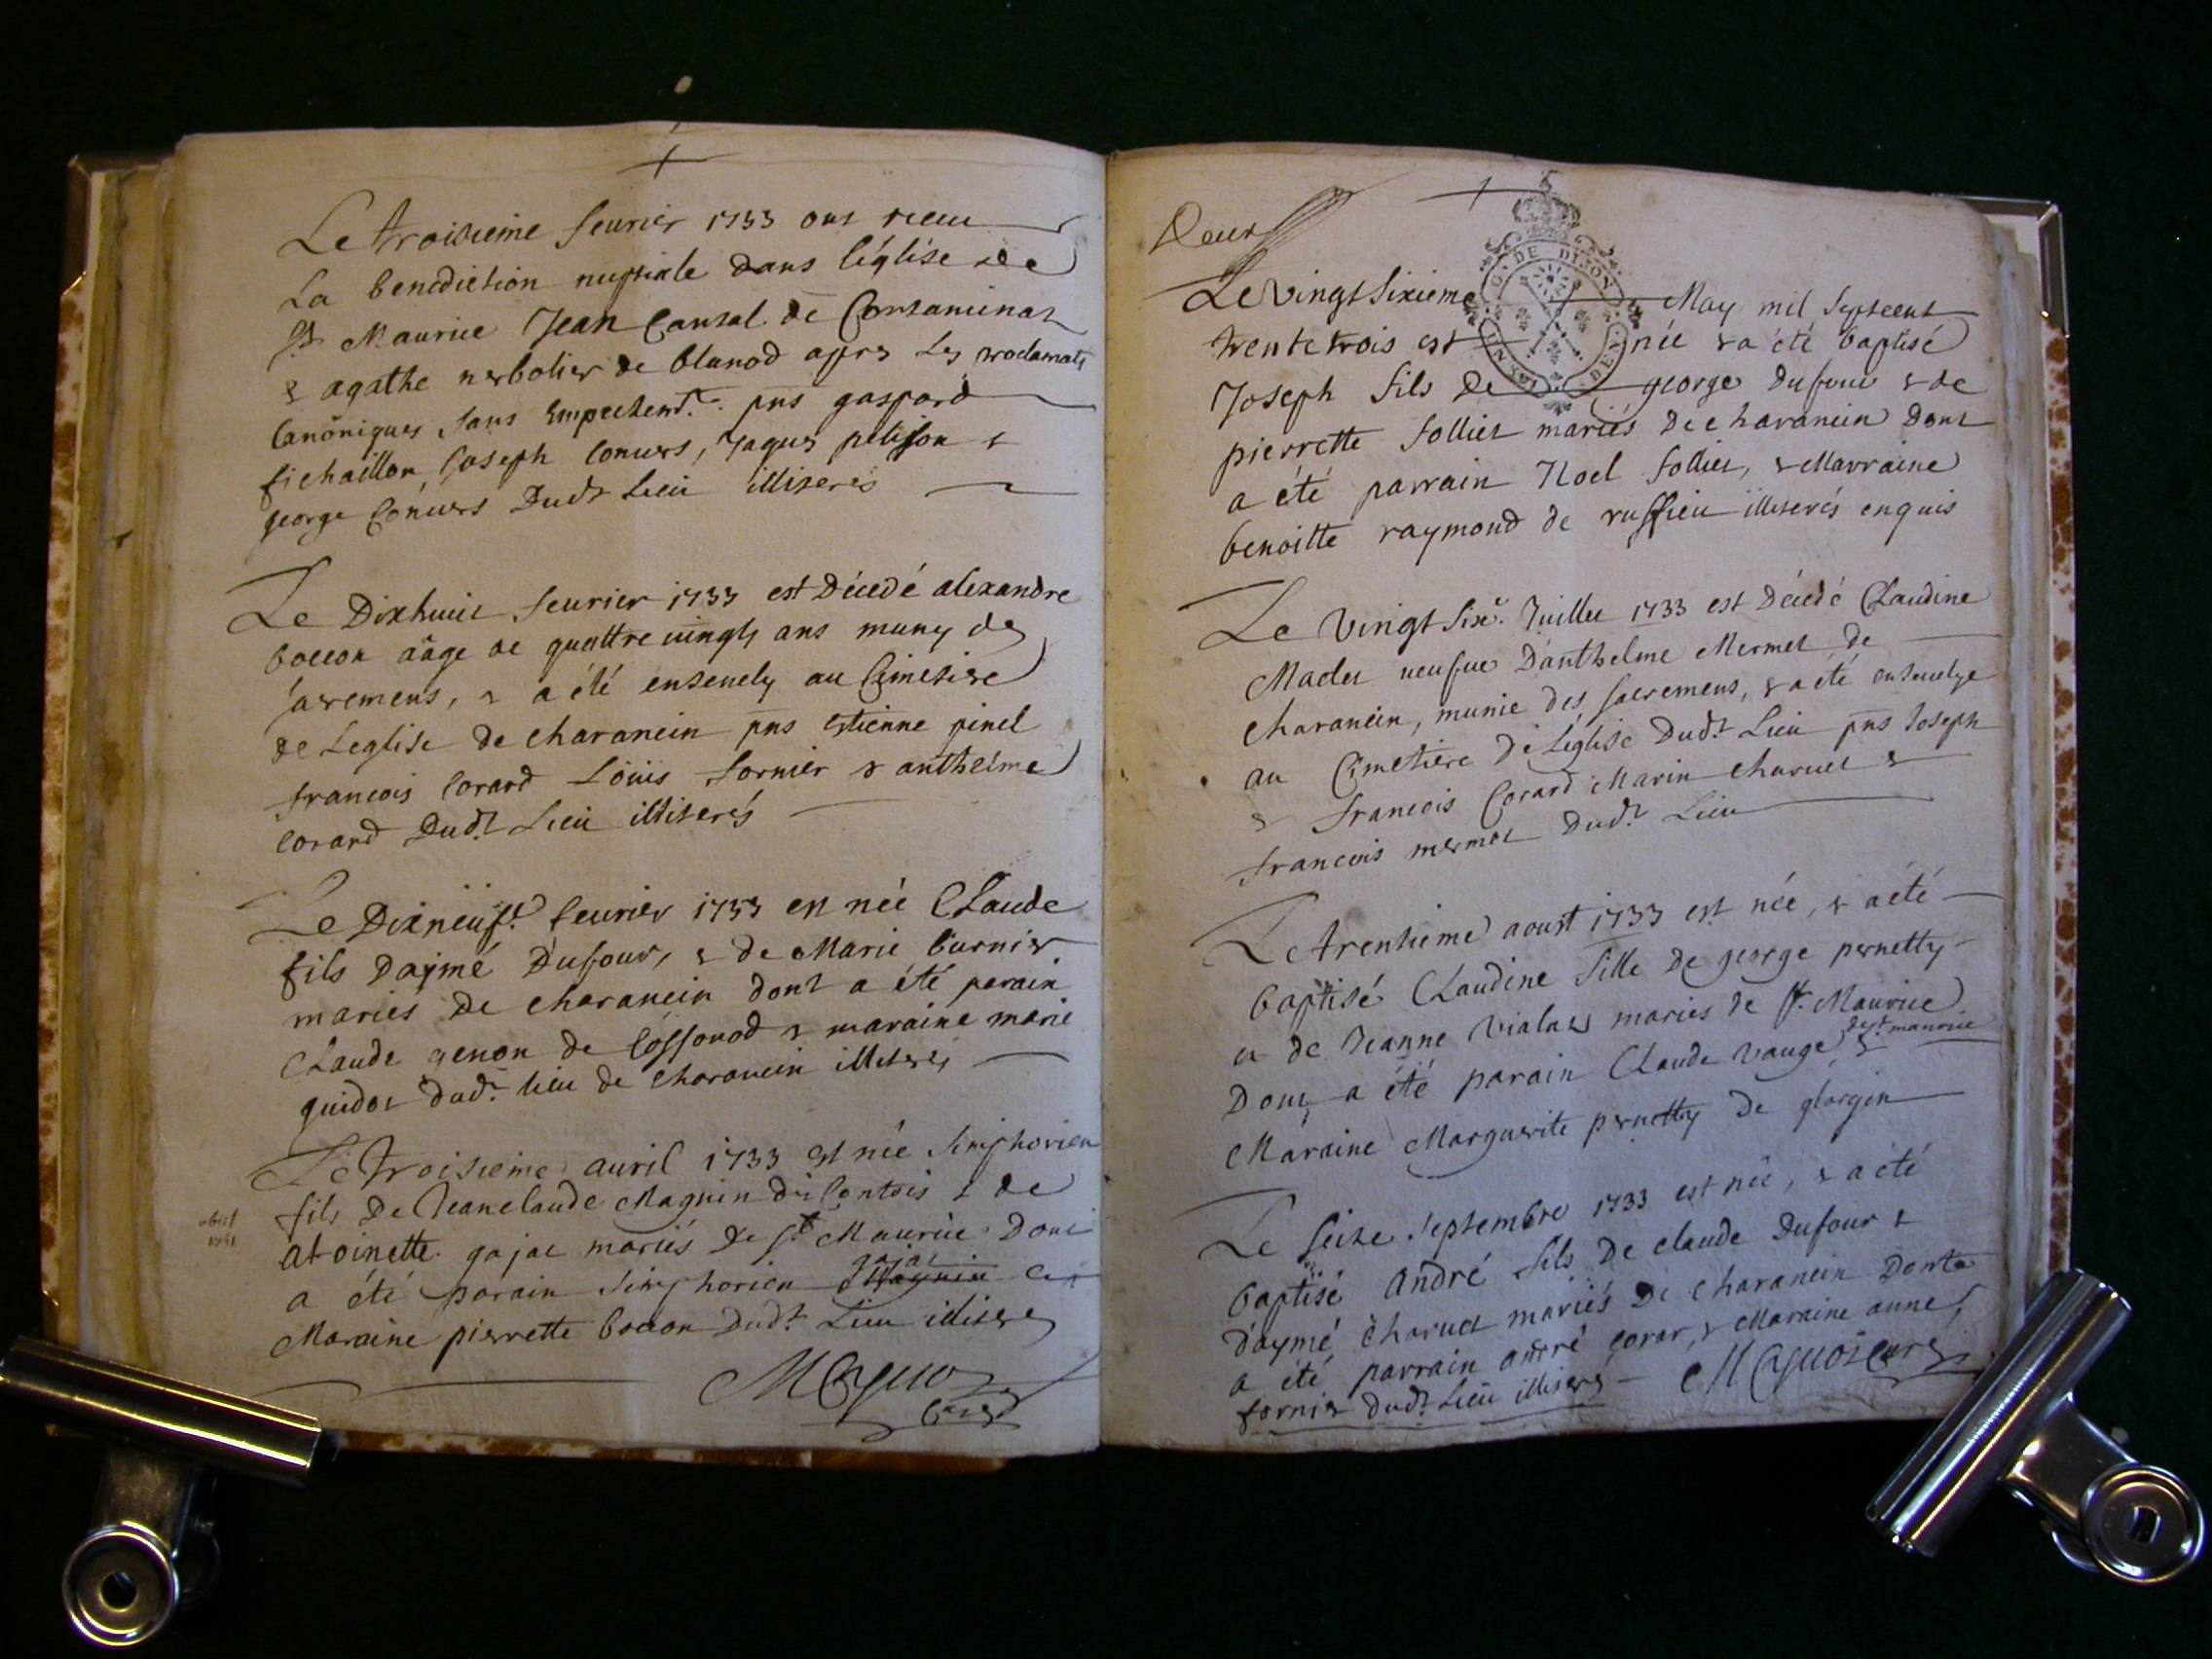 Le troisieme feurier 1733 ont receu
La benediction nuptiale dans l'église de
St Maurice Jean Cantal de Contaminat
& agathe nerbolier de blanod apres Les proclamats
Canoniques sans Empechemt. pns gaspard
fichaillon, Joseph Conuers, Jaques pelisson &
george Conuers Dudt Lieu illiterés
Le Dixhuit feurier 1733 est Décedé alexandre
bocon aâge de quattre uingts ans muny des
sacremens, & a été enseuely au Cimetiere
de Leglise de charancin pns Estienne pinel
francois Corard Loüis fornier & anthelme
Corard Dudt Lieu illiterés
Le Dixneuft. feurier 1733 est née CLaude
fils Daymé Dufour, & de Marie burnier
mariés De charancin dont a été parain
CLaude genon de Cossonod & maraine marie
guidot dudt. lieu de charancin illiterés
Le Troisieme auril 1733 est née Simphorien
fils De Jeanclaude Magnin dit Contois & de
atoinette gajac mariés de St Maurice Dont
obiit
gajac
a été parain Simphorien Magnin et
Maraine pierrette bocon Dudt Lieu illiterés
Curé
Deux
G. DE DIJON
Le vingt sixieme May mil septcent
trente trois est née & a été baptisé
Joseph fils De george dufour & de
pierrette follier mariés de charancin Dont
a été parrain Noel follier, & Marraine
benoitte raymond de ruffieu illiterés enquis
Le vingt sixe. Juillet 1733 est Décedé Claudine
Mader ueufue D'anthelme Mermet de
charancin, munie des sacremens, & a été enseuelye
au Cimetiere De Léglise Dudt Lieu pns Joseph
& francois Corard Marin charuet &
francois mermet Dudt. Lieu
Le trentieme aoust 1733 est née, & a été
baptisé CLaudine fille de george pernetty
et de Jeanne Vialat mariés de St. Maurice
de st maurice
Dont a été parain CLaude vauge, &
Maraine Marguerite pernetty de glargin
Le seize septembre 1733 est née, & a été
baptisé André fils De claude Dufour &
d'aymé charuet mariés De charancin Dont
a été parrain André corar, & Maraine anne
fornier dudt. Lieu illiterés